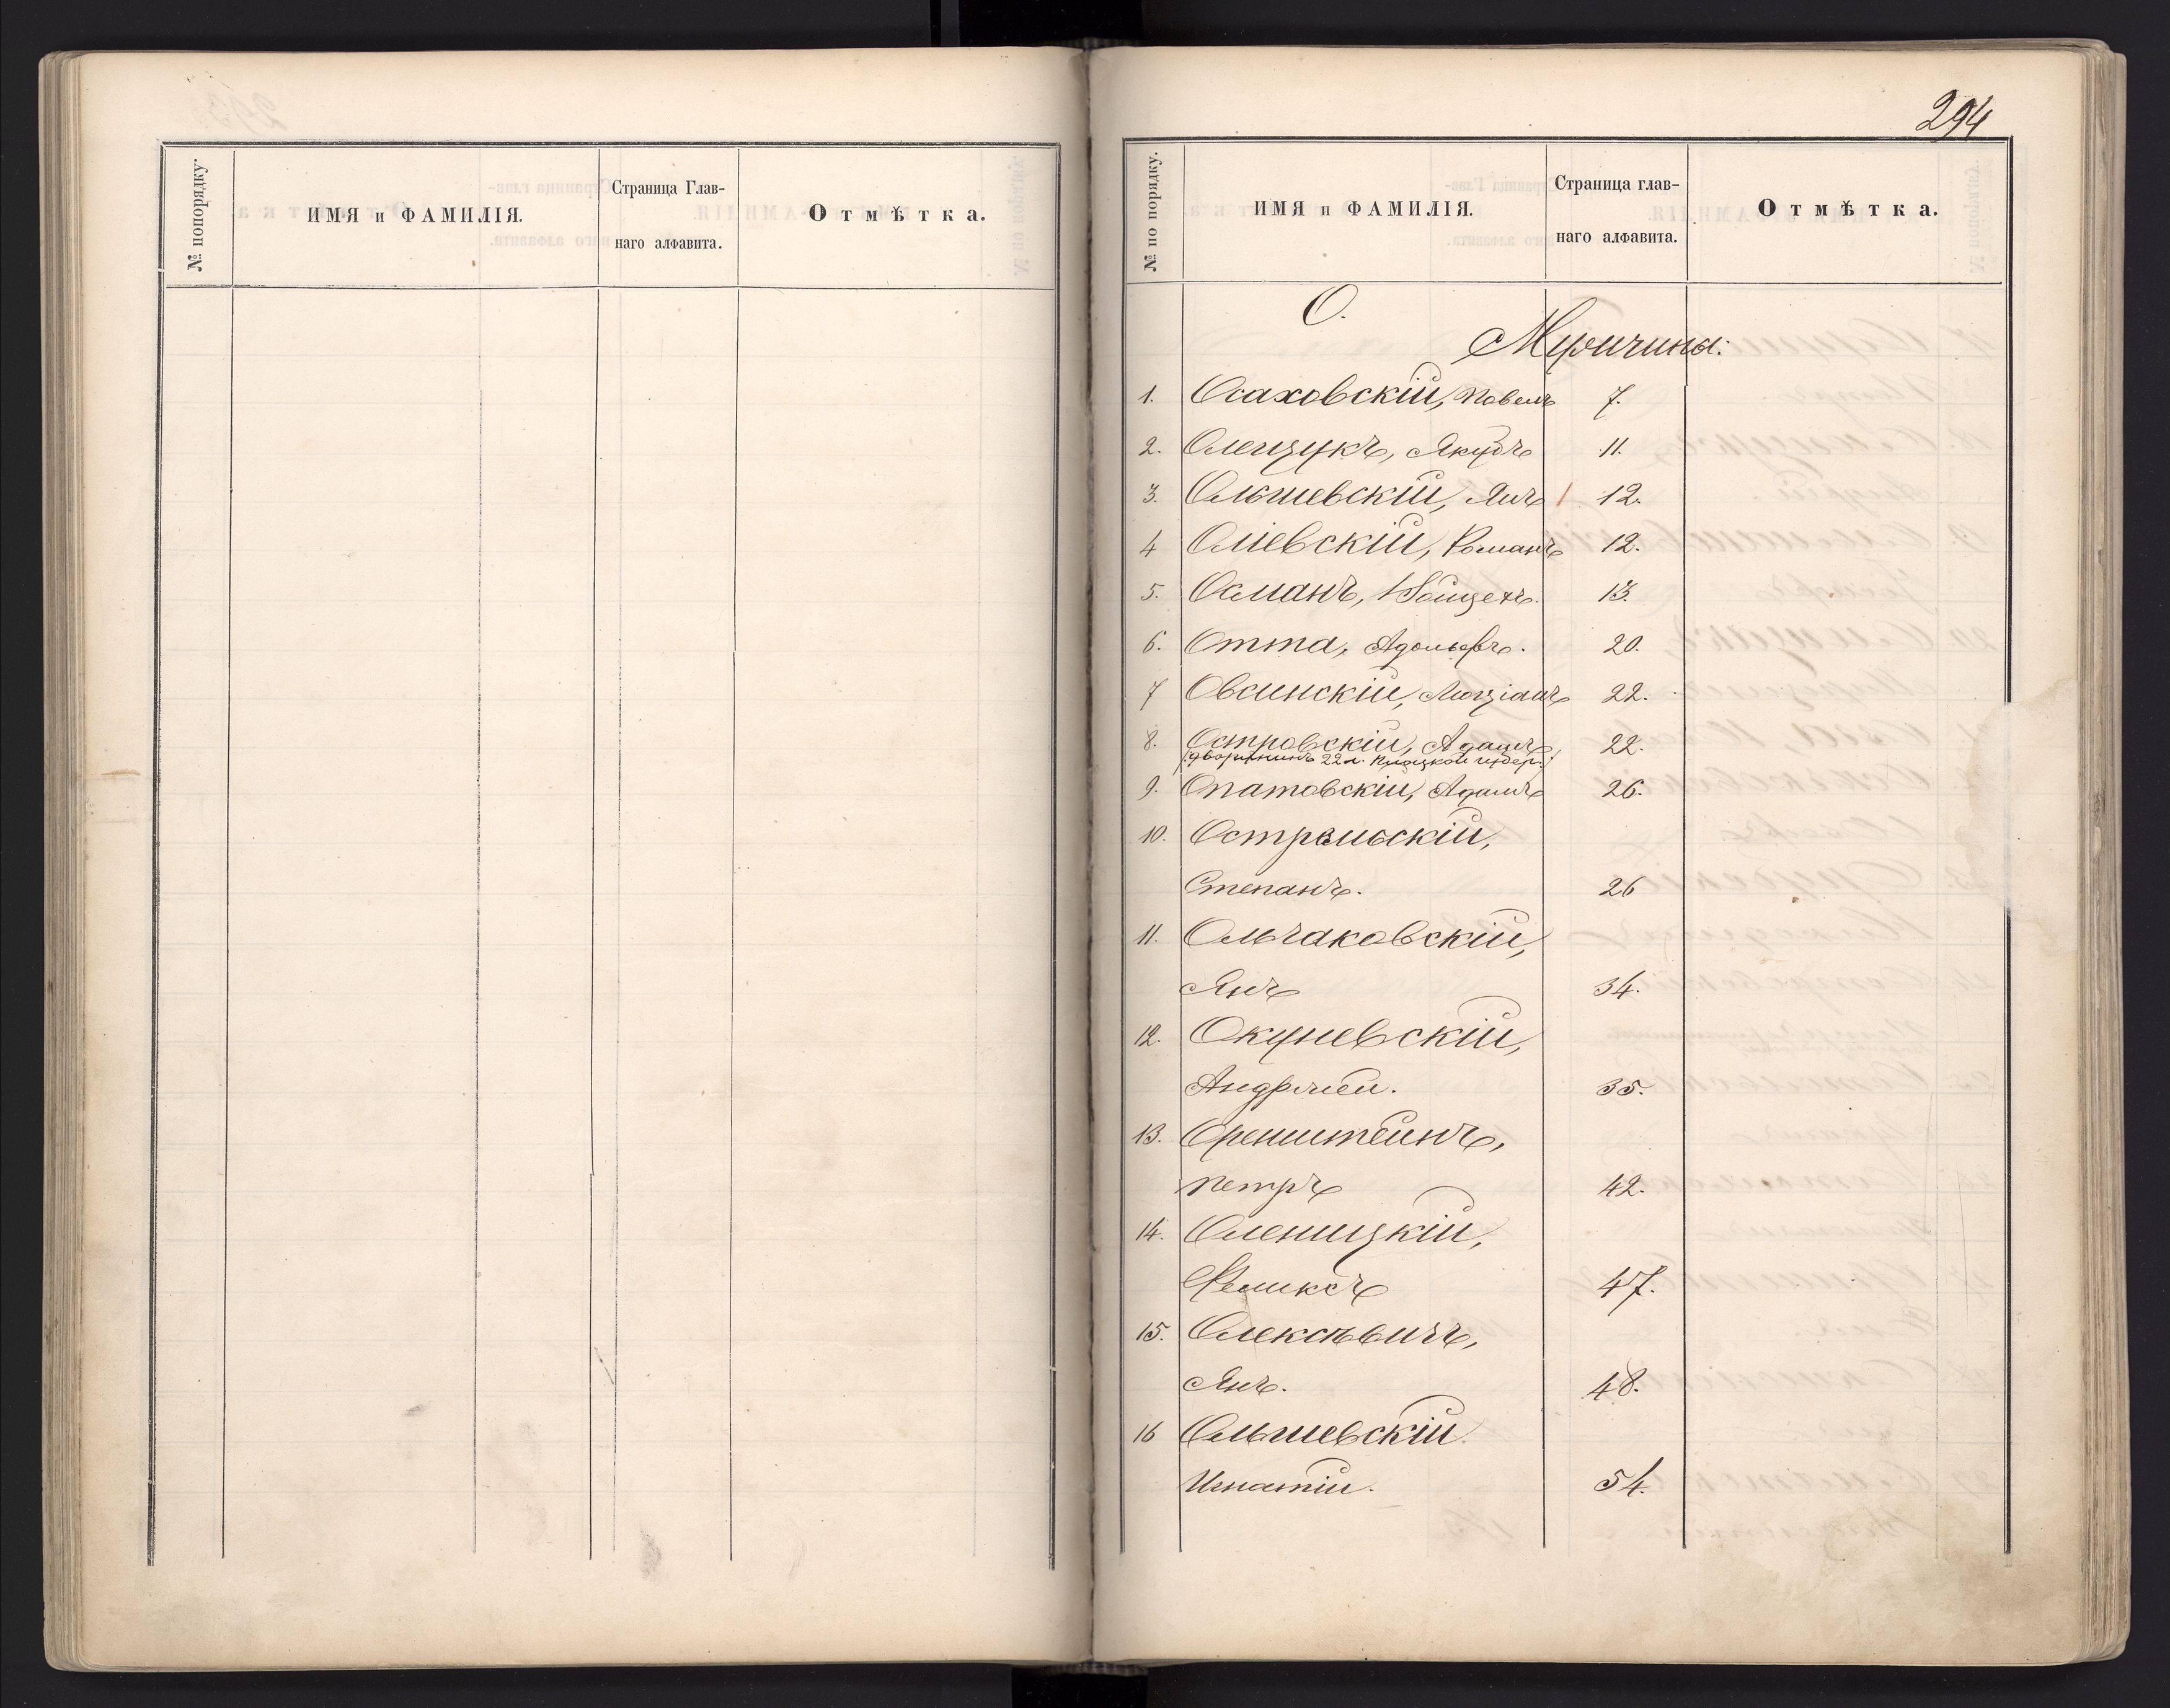 № попорядку.
ИМЯ и ФАМИЛІЯ.
Страница Глав-
наго алфавита.
Отмѣтка.
294
№ по порядку.
ИМЯ и ФАМИЛІЯ.
Страница глав-
наго алфавита.
Отмѣтка.
О.
Мужчина:
1. Осаховскій, Павелъ 7.
2. Олещукъ, Якубъ 11.
3. Ольшевскій, Янъ 12.
4 Оліевскій, Романъ 12.
5. Османъ, Войцехъ. 13.
6. Отта, Адольфъ. 20.
7 Овсинскій, Люціанъ 22.
8. Островскій, Адамъ 22.
дворянинъ 22 л. Плоцкой губер.
9. Опатовскій, Адамъ 26.
10. Остральскій,
Степанъ. 26
11. Ольчаковскій,
Янъ 34.
12. Окуневскій,
Андржей. 35.
13. Оренштейнъ,
Петръ 42.
14. Оленицкій,
Феликсъ 47.
15. Олексѣвичъ,
Янъ. 48.
16 Ольшевскій
Игнатій. 54.